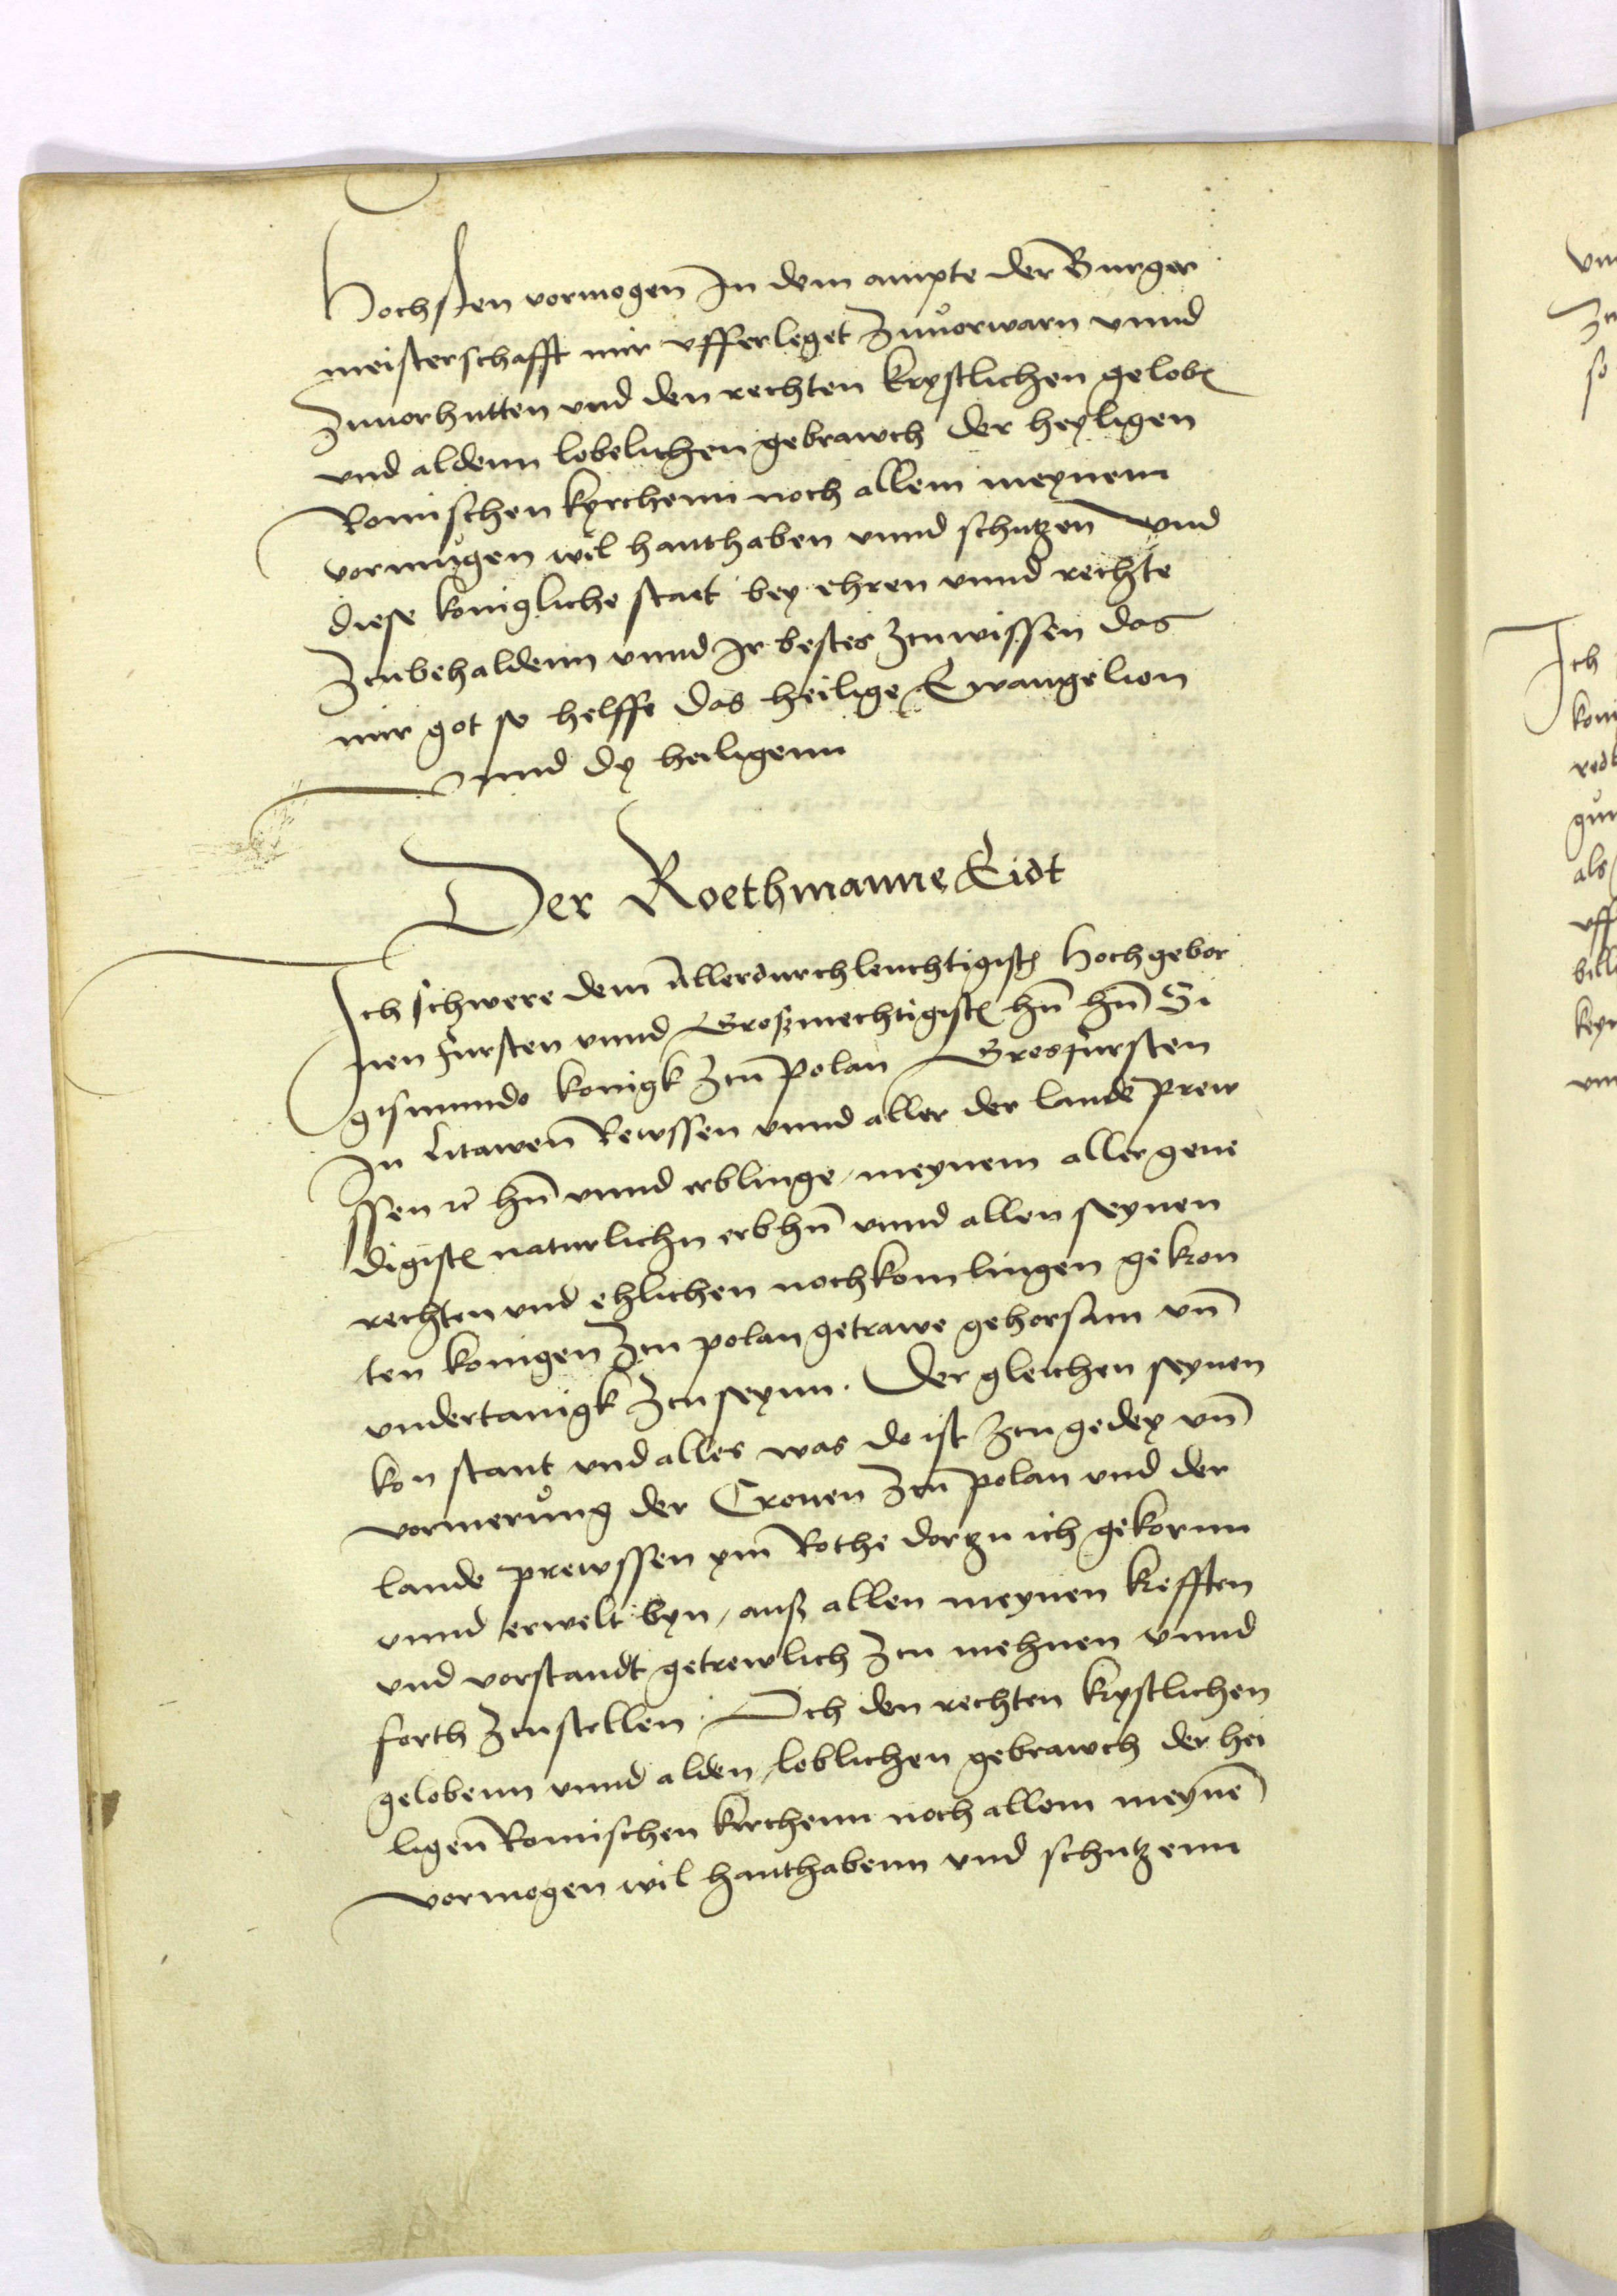 Hochsten vormogen In dem ampte der Burger
meisterschafft mir vfferleget Zuuorwarn vnnd
Zuuorhutten vnd den rechten krystlichen gelobē
vnd aldenn lobelichen gebrawch der heyligen
Romischen kyrchenn noch allem meynem
vormugen wil hanthaben vnnd schutzen Vnd
diese konigliche stat bey ehren vnnd rechte
Zcubehaldenn vnnd Ir bestes Zcuwissen das
mir got so helffe das heilige Ewangelion
Vnnd dy heiligenn
Der Roethmanne Eidt
Ich schwere dem Allerdurchleuchtigistē Hochgebor
nen fursten vnnd Großmechtigistē hn̄ hn̄ Si
gismundo konigk Zcu Polan Grosfursten
In Litawen Rewssen vnnd aller der lande prew
ssen ꝛc hn̄ vnnd erblinge, meynem aller gene
digistē naturlichn erbhn̄ vnnd allen seynen
rechten vnd ehlichen nochkomlingen gekron
ten konigen Zcu polan getrawe gehorsam vn̄
vndertanigk Zcu seynn. Der gleichen seynen
kon stant vnd alles was do ist Zcu gedey vn̄
vormerung der Cronen Zcu polan vnd der
lande prewssen ym Rothe dorzu ich gekornn
vnnd erwelt byn, auß allen meynen krefften
vnd vorstandt getrewlich Zcu mehnen vnnd
forth Zcu stellen. Och den rechten krystlichen
gelobenn vnnd alden, loblichen gebrawch der hei
ligen Romischen kirchenn noch allem meynē
vormogen wil hanthabenn vnd schutzenn